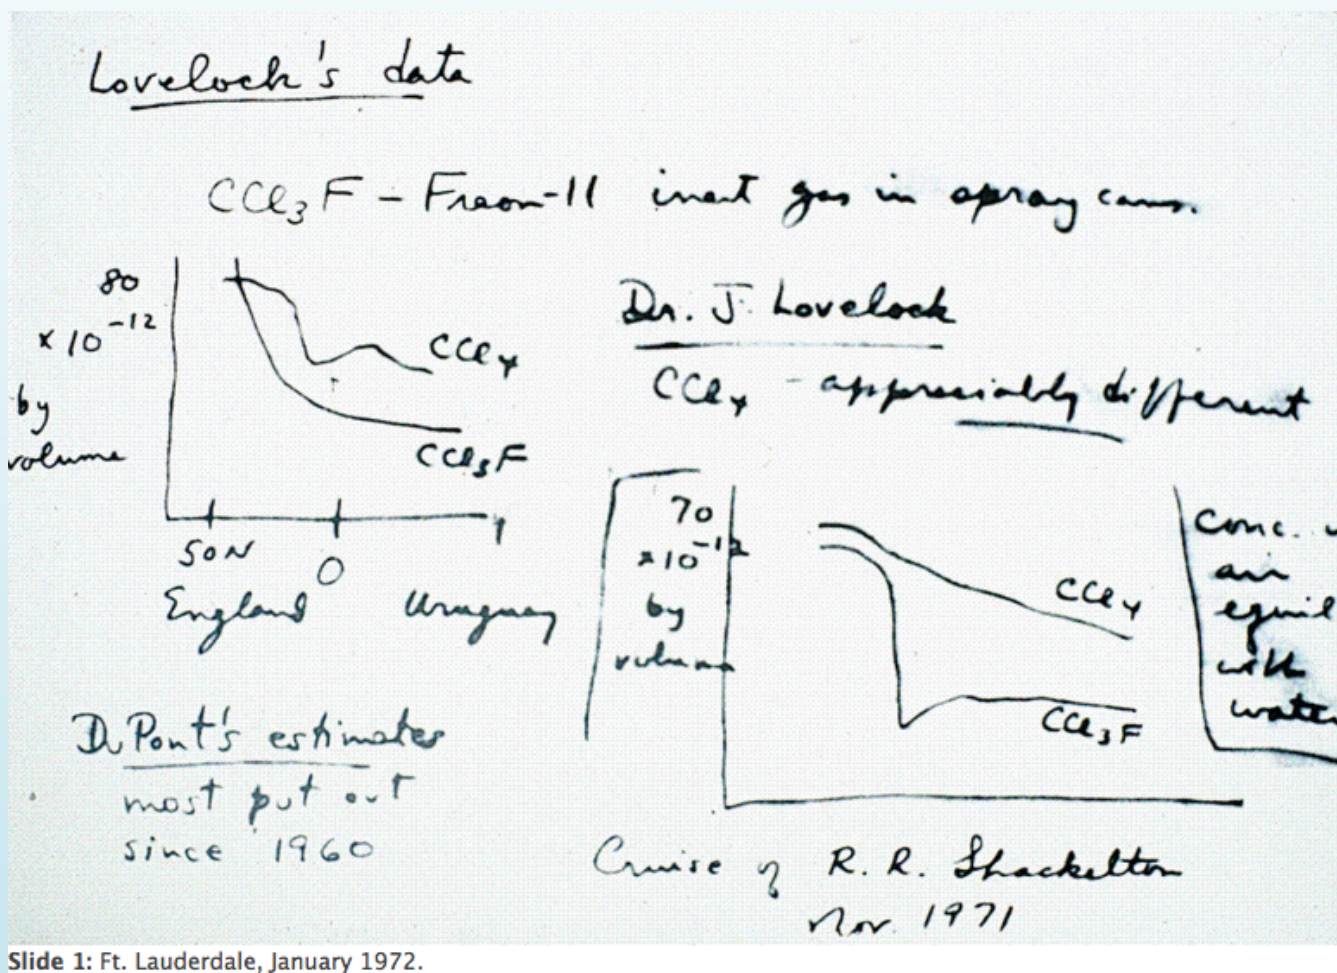 Lovelock's data
CCl3F - Freon-11 inert gas in spray cans.
80
x 10^-12
by
volume
CCl4
CCl3F
50N
0
England
Uruguay
Dr. J. Lovelock
CCl4 - appreciably different
70
x10^-12
by
volume
CCl4
CCl3F
conc.
air
equil
with
water
DuPont's estimates
most put out
since 1960
Cruise of R. R. Shackelton
Nov. 1971
Slide 1: Ft. Lauderdale, January 1972.